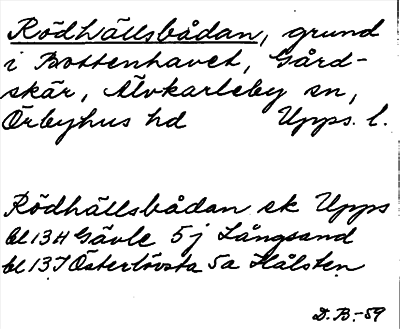 Rödhällsbådan, grund
i Bottenhavet, Gård-
skär, Älvkarleby sn,
Örbyhus hd Upps. l.
Rödhällsbådan ek Upps
bl 13H Gävle 5j Långsand
bl 13I Österlövsta 5a Hålsten
D.B.-59